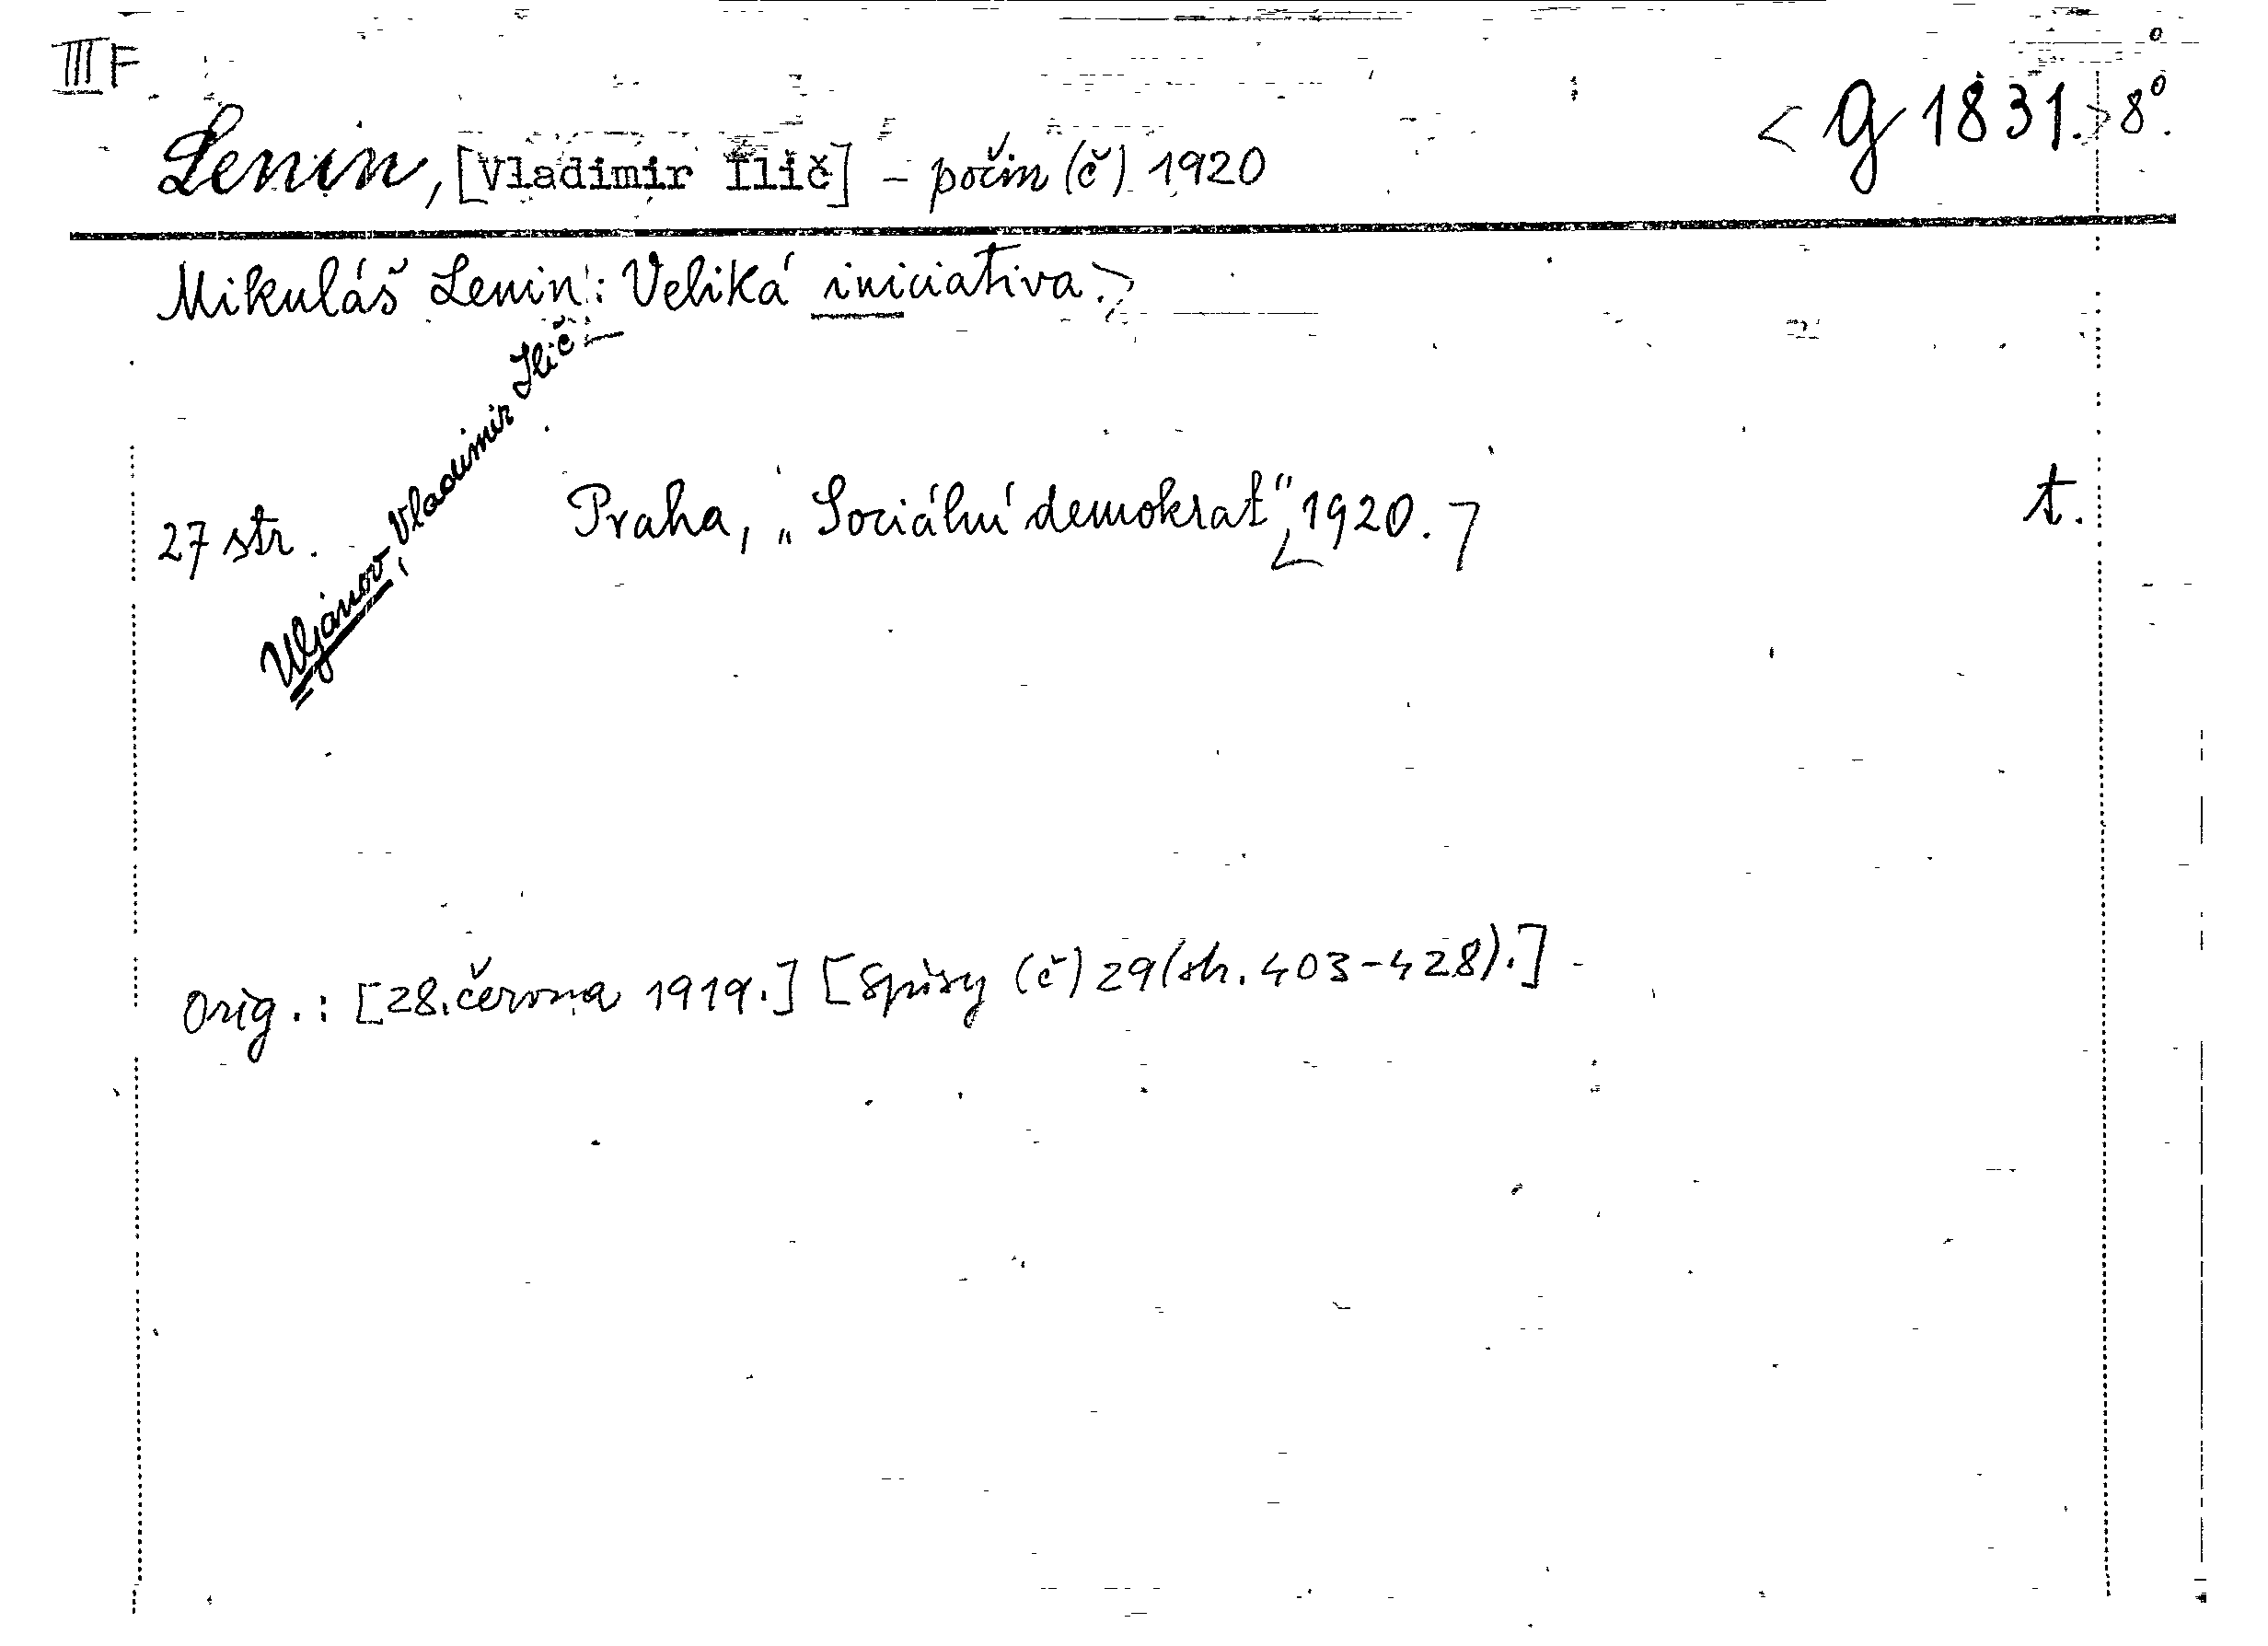 III F
< g 1831.> 8°.
Lenin, [Vladimir Ilič] - počin (č) 1920
Mikuláš Lenin: Veliká iniciativa.>
Uljánov, Vladimir Ilič
27 str. Praha, „Sociální demokrat“, 1920. t.
Orig.: [28. června 1919.] [Spisy (č) 29 (str. 403-428).]